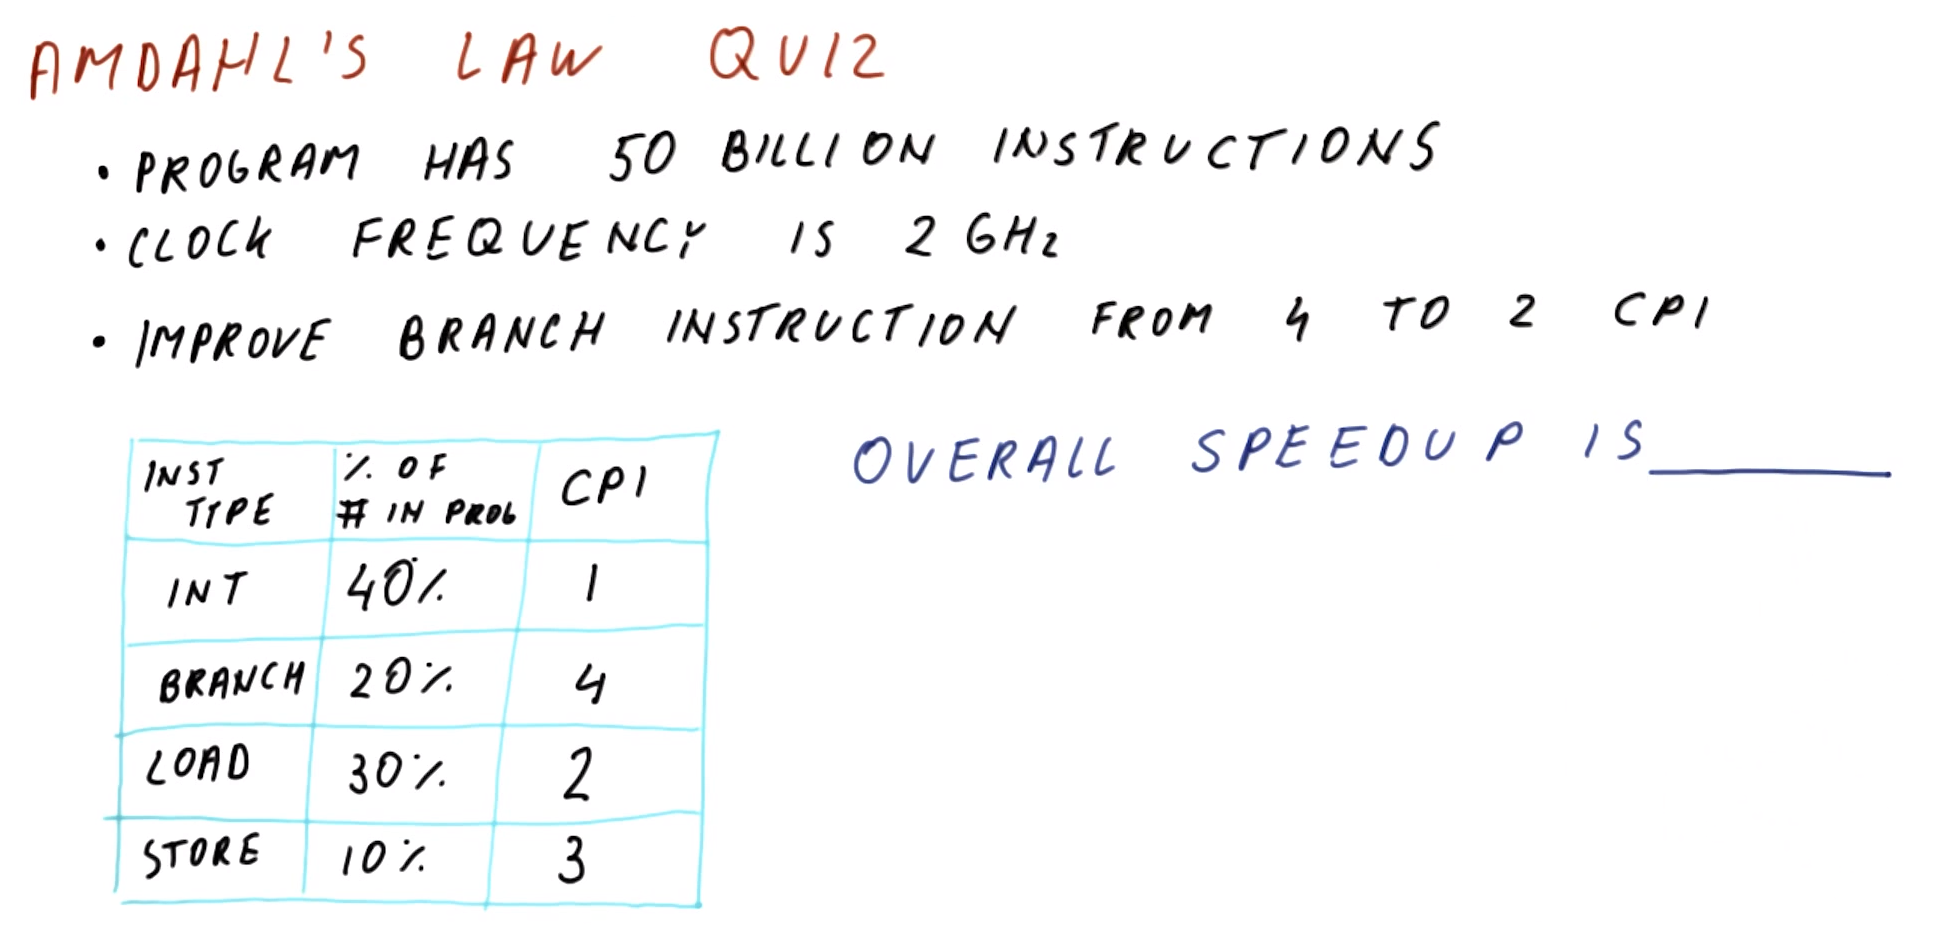 AMDAHL'S LAW QUIZ
• PROGRAM HAS 50 BILLION INSTRUCTIONS
• CLOCK FREQUENCY IS 2 GHz
• IMPROVE BRANCH INSTRUCTION FROM 4 TO 2 CPI
OVERALL SPEEDUP IS______
INST TYPE % OF # IN PROG CPI
INT 40% 1
BRANCH 20% 4
LOAD 30% 2
STORE 10% 3